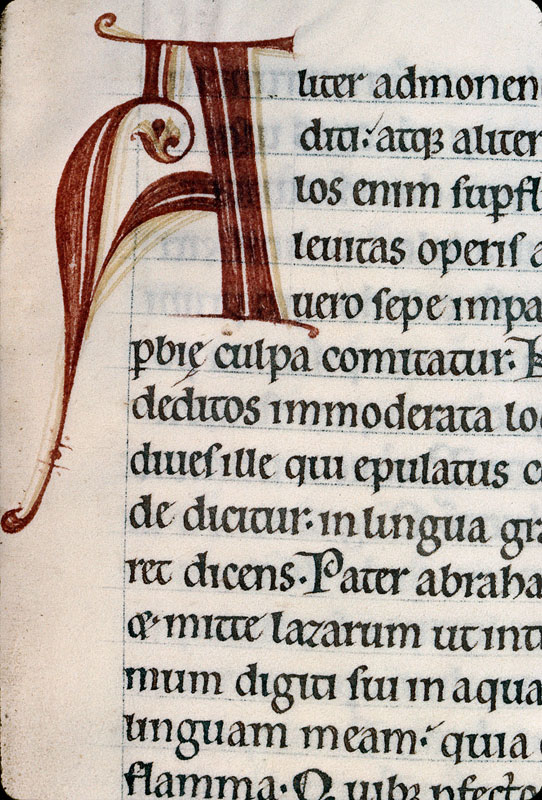 Aliter admonen
diti: atq; aliter
los enim supfl
leuitas operis a
uero sepe impa
pbię culpa comitatur.
deditos immoderata lo
diues ille qui epulatus c
de dicitur: in lingua gra
ret dicens. Pater abraha
& mitte lazarum ut inti
mum digiti sui in aqua
linguam meam: quia
flamma. Quibz pfecto